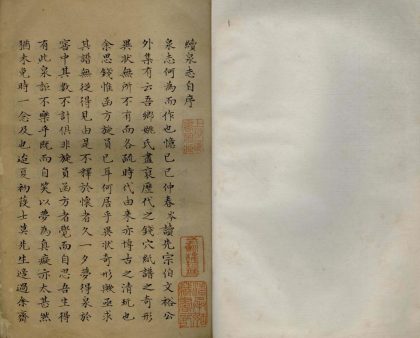 續泉志自序
泉志何為而作也憶己巳仲春岑讀先宗伯文裕公
外集有云吾鄉姚氏盡裒歷代之錢穴紙譜之奇形
異狀無所不有而各疏時代由来亦博古之清玩也
余思錢惟函方旋員已耳何居乎異狀奇形輙亟求
其譜無從得見由是不釋於懷者久一夕夢得泉於
窖中其數不計俱非旋員函方者覺而自忍吾生得
有此泉詎不樂乎既而自笑以夢為真癡亦太甚然
猶未免時一念及也迨夏初護士其先生過余齋